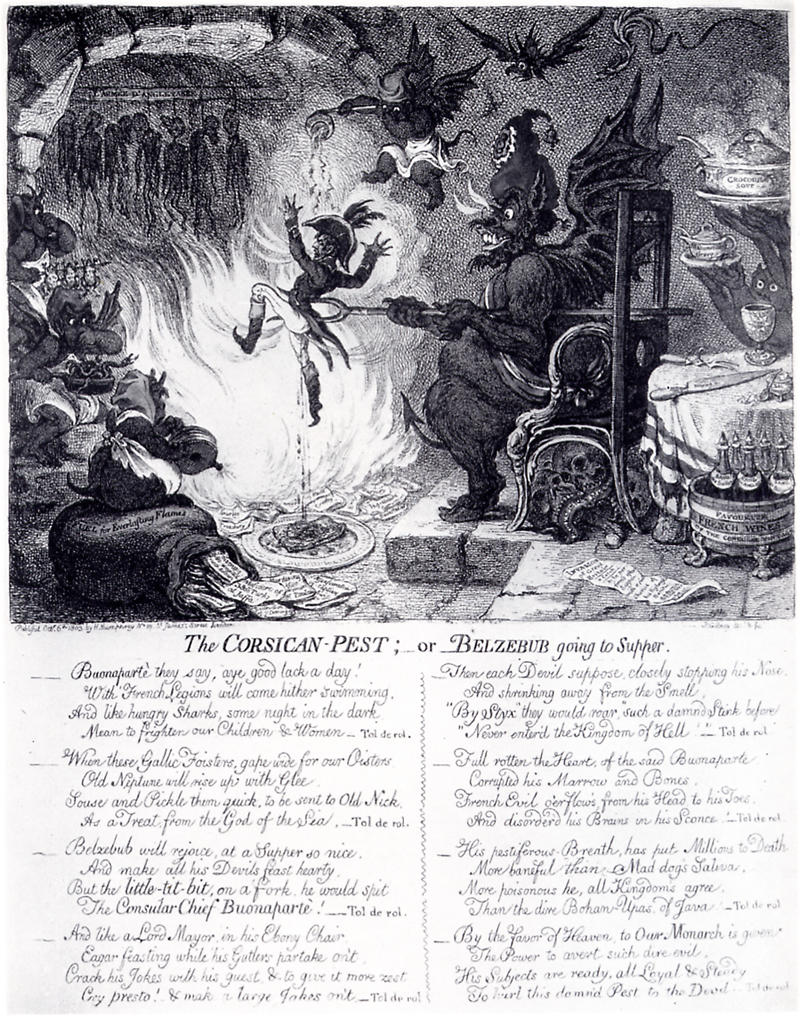 ARMÉE D'ANGLETERRE
CROCODILE SOUP
FUEL for Everlasting Flames
FAVOURITE
FRENCH WINES
Publish'd Oct. 6th 1803, by H. Humphrey No 27 St James's Street London
The CORSICAN-PEST; or BELZEBUB going to Supper.
Buonapartè they say, aye good lack a day!
With French Legions will come hither swimming.
And like hungry Sharks, some night in the dark
Mean to frighten our Children & Women Tol de rol.
When these Gallic Foisters, gape wide for our Oisters
Old Neptune will rise up with Glee.
Souse and Pickle them quick, to be sent to Old Nick.
As a Treat from the God of the Sea. Tol de rol.
Belzebub will rejoice, at a Supper so nice.
And make all his Devils feast hearty.
But the little-tit-bit, on a fork, he would spit
The Consular Chief Buonapartè! Tol de rol.
And like a Lord Mayor, in his Ebony Chair
Eagar feasting while his Gutlers partake on't,
Crack his Jokes with his guest, & to give it more zest
Cry presto! & make a large Jakes on't Tol de rol
Then each Devil suppose, closely stopping his Nose
And shrinking away from the Smell,
"By Styx" they would roar, "such a damn'd Stink before
"Never enter'd the Kingdom of Hell!" Tol de rol
Full rotten the Heart, of the said Buonaparte
Corrupted his Marrow and Bones,
French Evil o'erflows, from his Head to his Toes.
And disorder'd his Brains in his Sconce! Tol de rol.
His pestiferous Breath, has put Millions to Death
More baneful than a Mad dog's Saliva,
More poisonous he, all Kingdoms agree,
Than the dire Bohan-Upas, of Java! Tol de rol
By the favor of Heaven, to Our Monarch is given
The Power to avert such dire evil,
His Subjects are ready, all Loyal & Steady
To hurl this damn'd Pest to the Devil Tol de rol